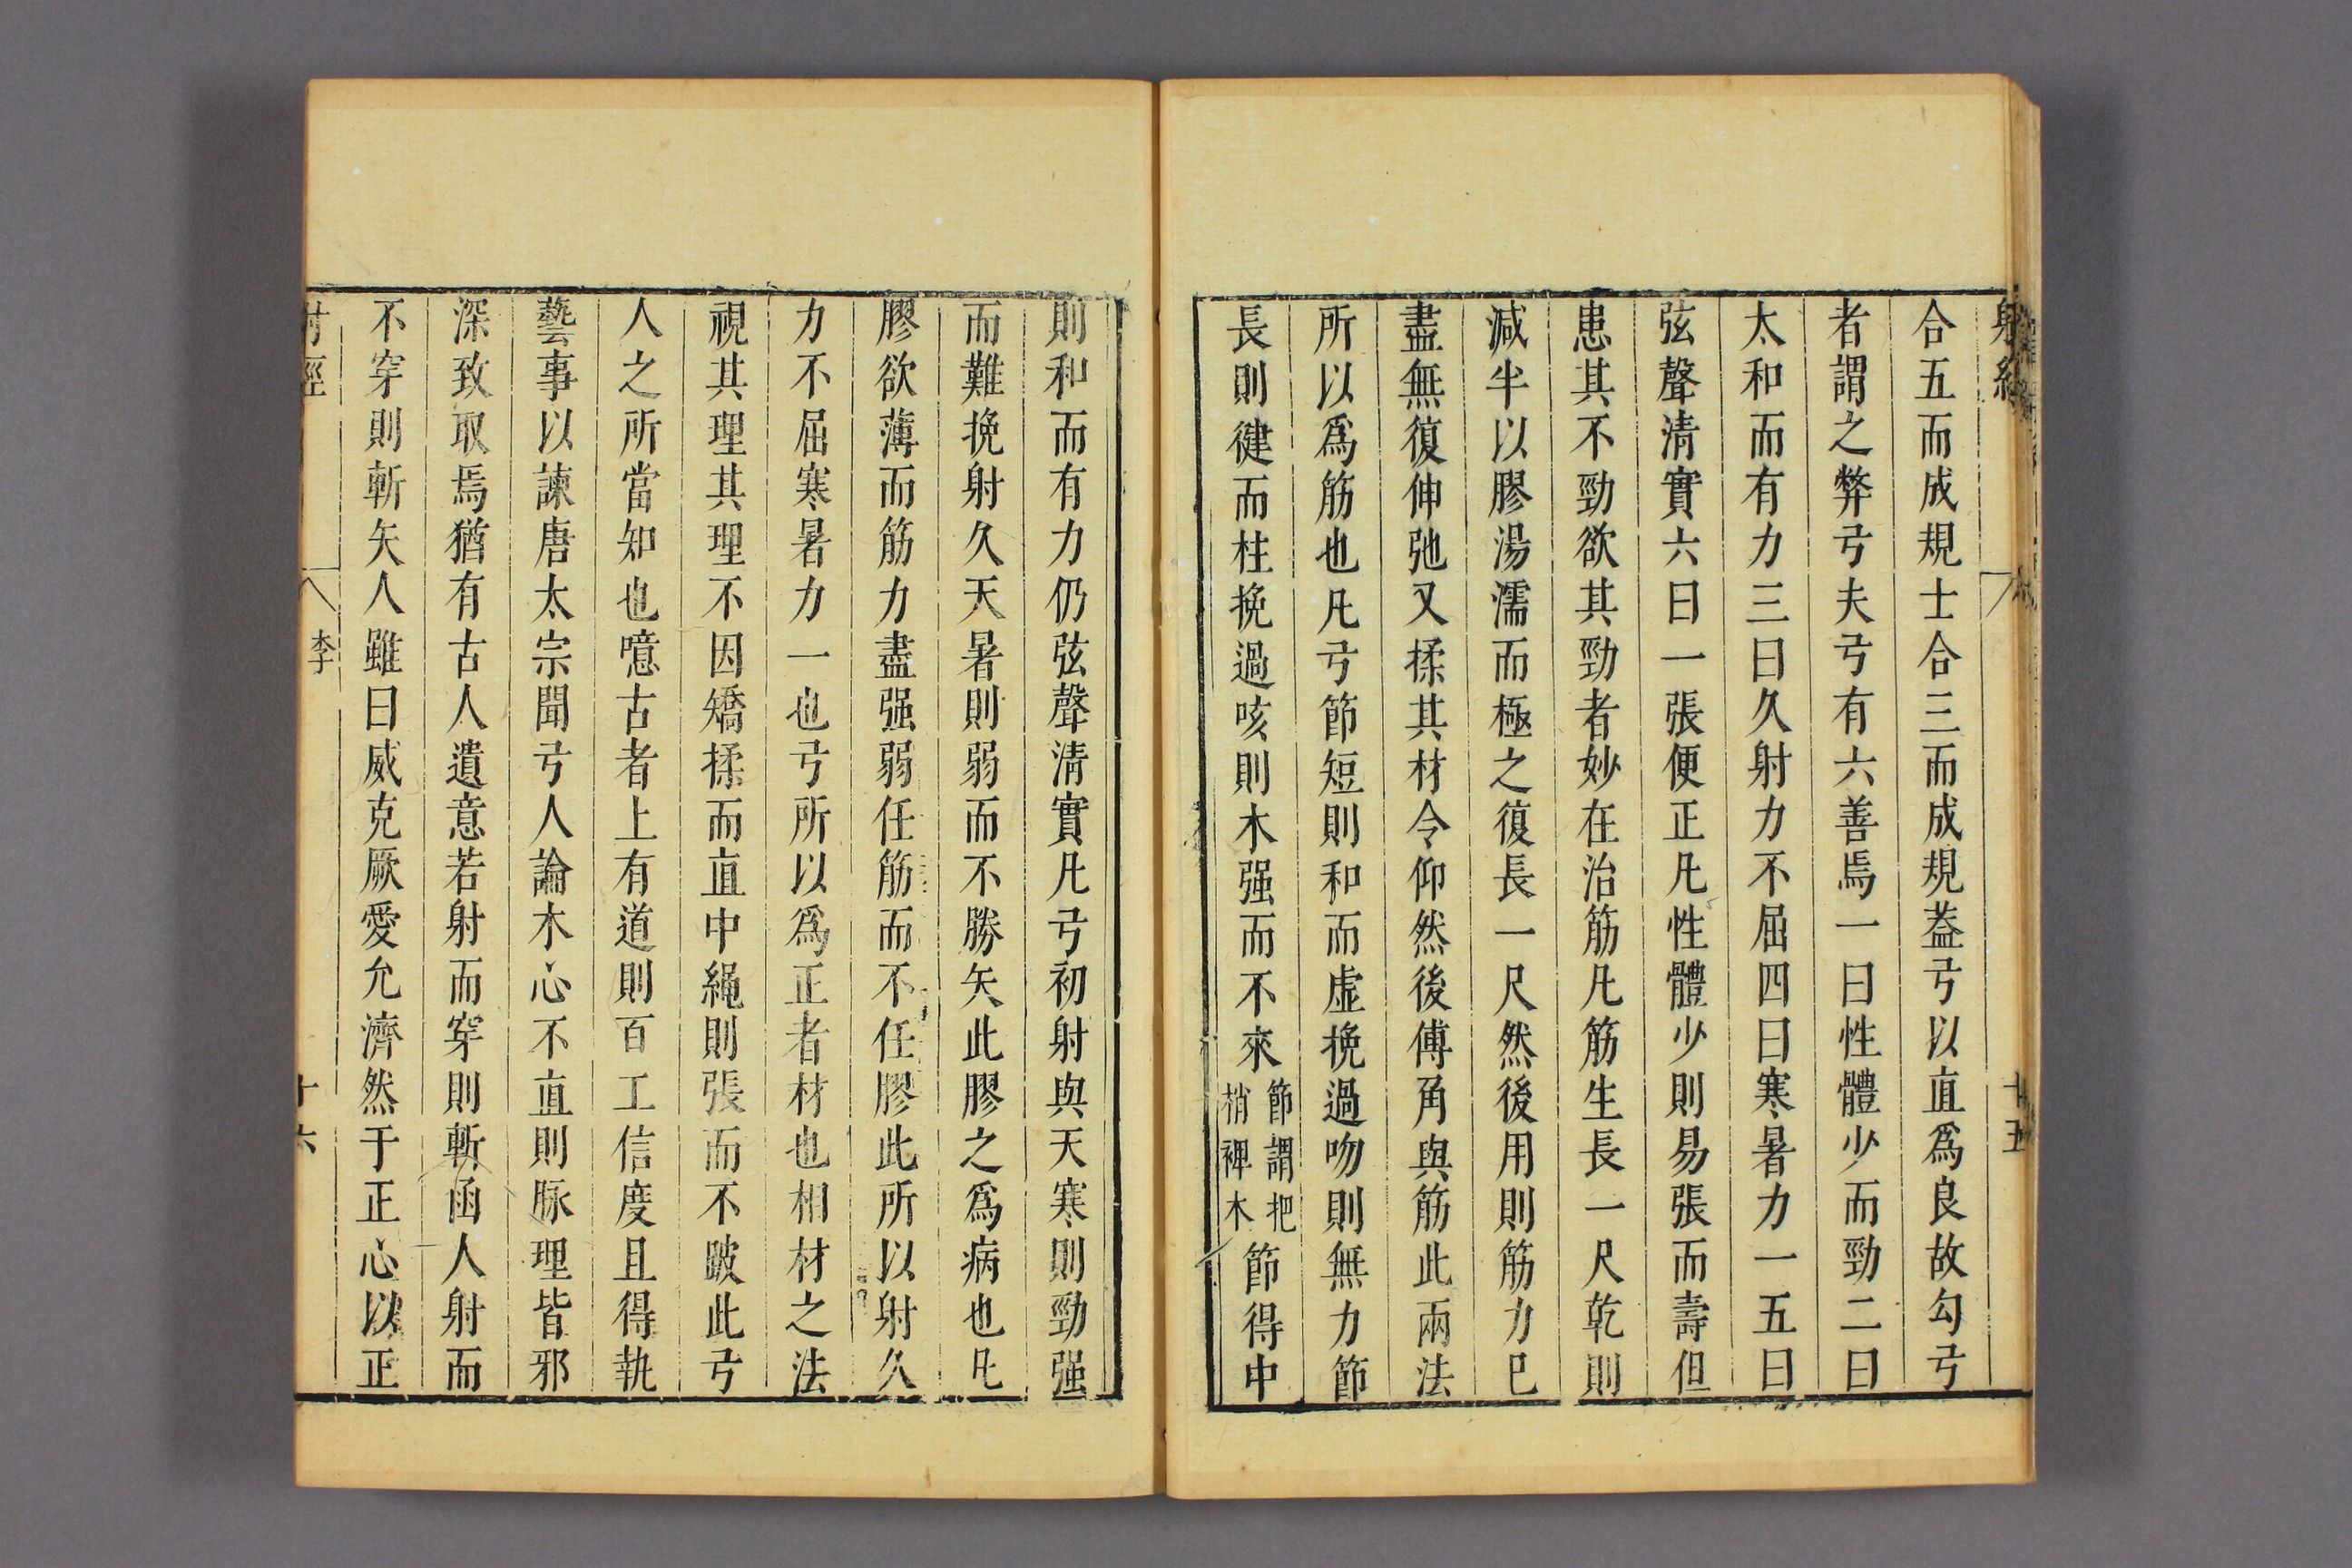 射經
十五
合五而成規士合三而成規蓋弓以直爲良故勾弓
者謂之弊弓夫弓有六善焉一曰性體少而勁二曰
太和而有力三曰久射力不屈四曰寒暑力一五曰
弦聲淸實六曰一張便正凡性體少則易張而壽但
患其不勁欲其勁者妙在治筋凡筋生長一尺乾則
減半以膠湯濡而極之復長一尺然後用則筋力已
盡無復伸弛又揉其材令仰然後傅角與筋此兩法
所以爲筋也凡弓節短則和而虛挽過吻則無力節
長則揵而柱挽過咳則木强而不來節謂把梢裨木節得中
則和而有力仍弦聲淸實凡弓初射與天寒則勁强
而難挽射久天暑則弱而不勝矢此膠之爲病也凡
膠欲薄而筋力盡强弱任筋而不任膠此所以射久
力不屈寒暑力一也弓所以爲正者材也相材之法
視其理其理不因矯揉而直中繩則張而不跛此弓
人之所當知也噫古者上有道則百工信度且得執
藝事以諫唐太宗聞弓人論木心不直則脉理皆邪
深致取焉猶有古人遺意若射而穿則斬函人射而
不穿則斬矢人雖曰威克厥愛允濟然于正心以正
射經
李
十六